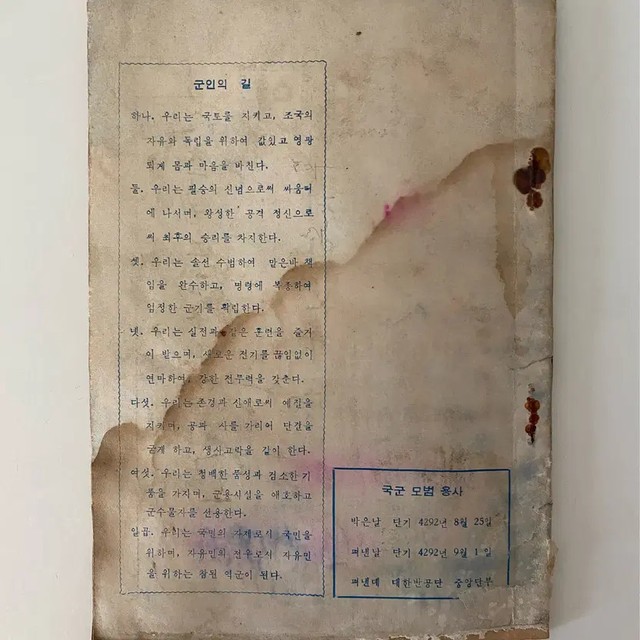 군인의 길
하나. 우리는 국토를 지키고, 조국의
자유와 독립을 위하여 값있고 영광
되게 몸과 마음을 바친다.
둘. 우리는 필승의 신념으로써 싸움터
에 나서며, 왕성한 공격 정신으로
써 최후의 승리를 차지한다.
셋. 우리는 솔선 수범하여 맡은바 책
임을 완수하고, 명령에 복종하여
엄정한 군기를 확립한다.
넷. 우리는 실전과 같은 훈련을 즐거
이 받으며, 새로운 전기를 끊임없이
연마하여, 강한 전투력을 갖춘다.
다섯. 우리는 존경과 신애로써 예절을
지키며, 공과 사를 가리어 단결을
굳게 하고, 생사고락을 같이 한다.
여섯. 우리는 청백한 품성과 검소한 기
풍을 가지며, 군용시설을 애호하고
군수물자를 선용한다.
일곱. 우리는 국민의 자제로서 국민을
위하며, 자유민의 전우로서 자유민
을 위하는 참된 역군이 된다.
국군 모범 용사
박은날 단기 4292년 8월 25일
펴낸날 단기 4292년 9월 1일
펴낸데 대한반공단 중앙단부